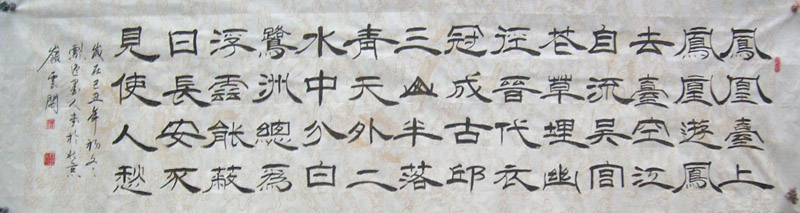 鳳凰臺上
鳳凰遊鳳
去臺空江
自流吳宮
花草埋幽
徑晉代衣
冠成古邱
三山半落
青天外二
水中分白
鷺洲總爲
浮雲能蔽
日長安不
見使人愁
歲在己丑年
人書於北京
嶺雲閣